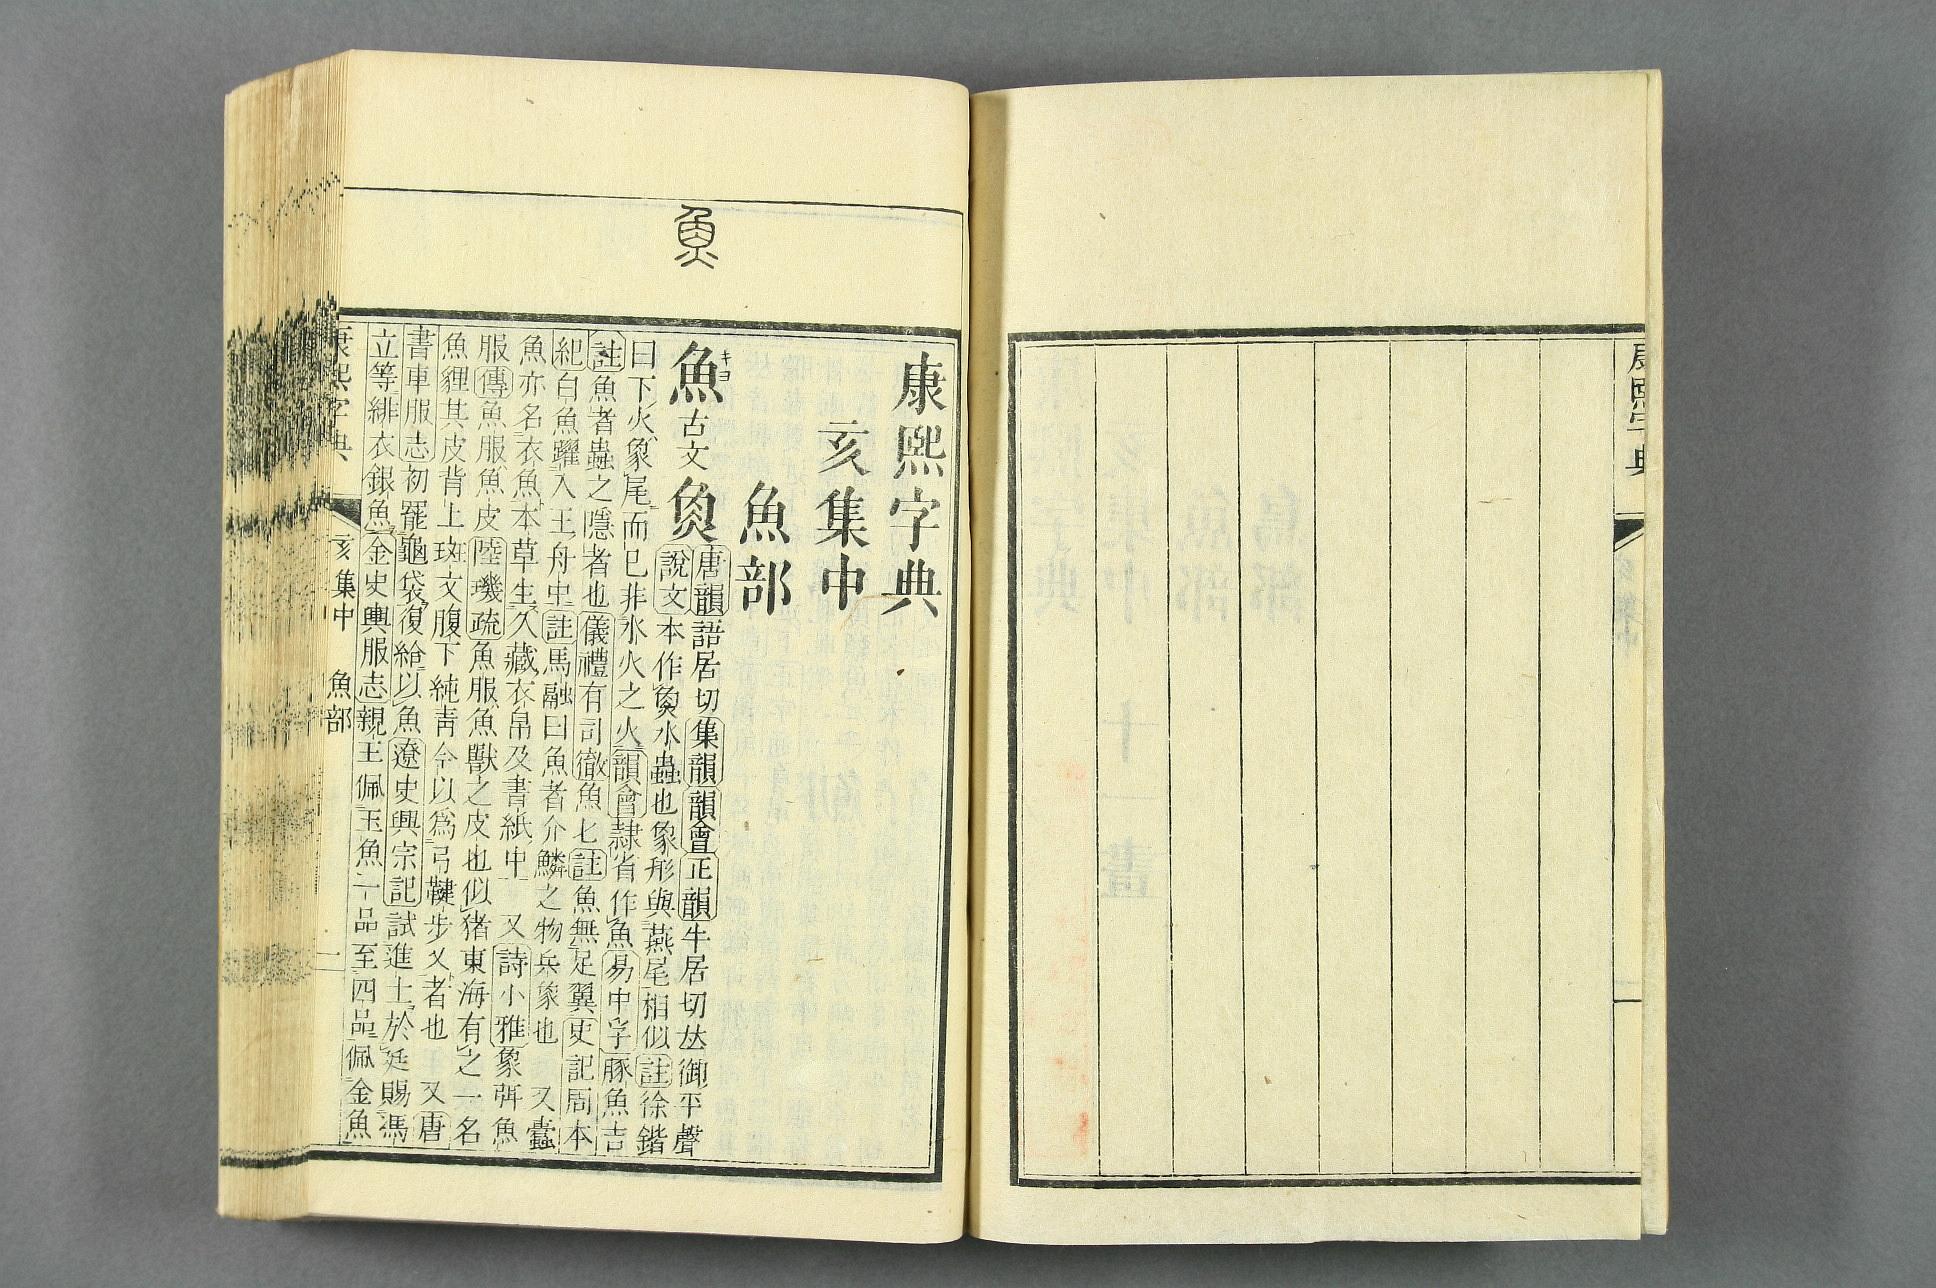 康熙字典
康熙字典
亥集中
魚部
魚
魚
キヨ
古文
𤋳
唐韻語居切集韻韻會正韻牛居切𠀤御平聲
說文本作𤋳水蟲也象形與燕尾相似註徐鍇
曰下火象尾而巳非水火之火韻會隸省作魚易中孚豚魚吉
註魚者蟲之隱者也儀禮有司徹魚七註魚無足翼史記周本
紀白魚躍入王舟中註馬融曰魚者介鱗之物兵象也　又蠹
魚亦名衣魚本草生久藏衣帛及書紙中　又詩小雅象弭魚
服傳魚服魚皮陸璣疏魚服魚獸之皮也似猪東海有之一名
魚貍其皮背上斑文腹下純靑今以爲弓鞬步叉者也　又唐
書車服志初罷龜袋復給以魚遼史興宗記試進士於廷賜馮
立等緋衣銀魚金史輿服志親王佩玉魚一品至四品佩金魚
康熙字典　亥集中　魚部　一